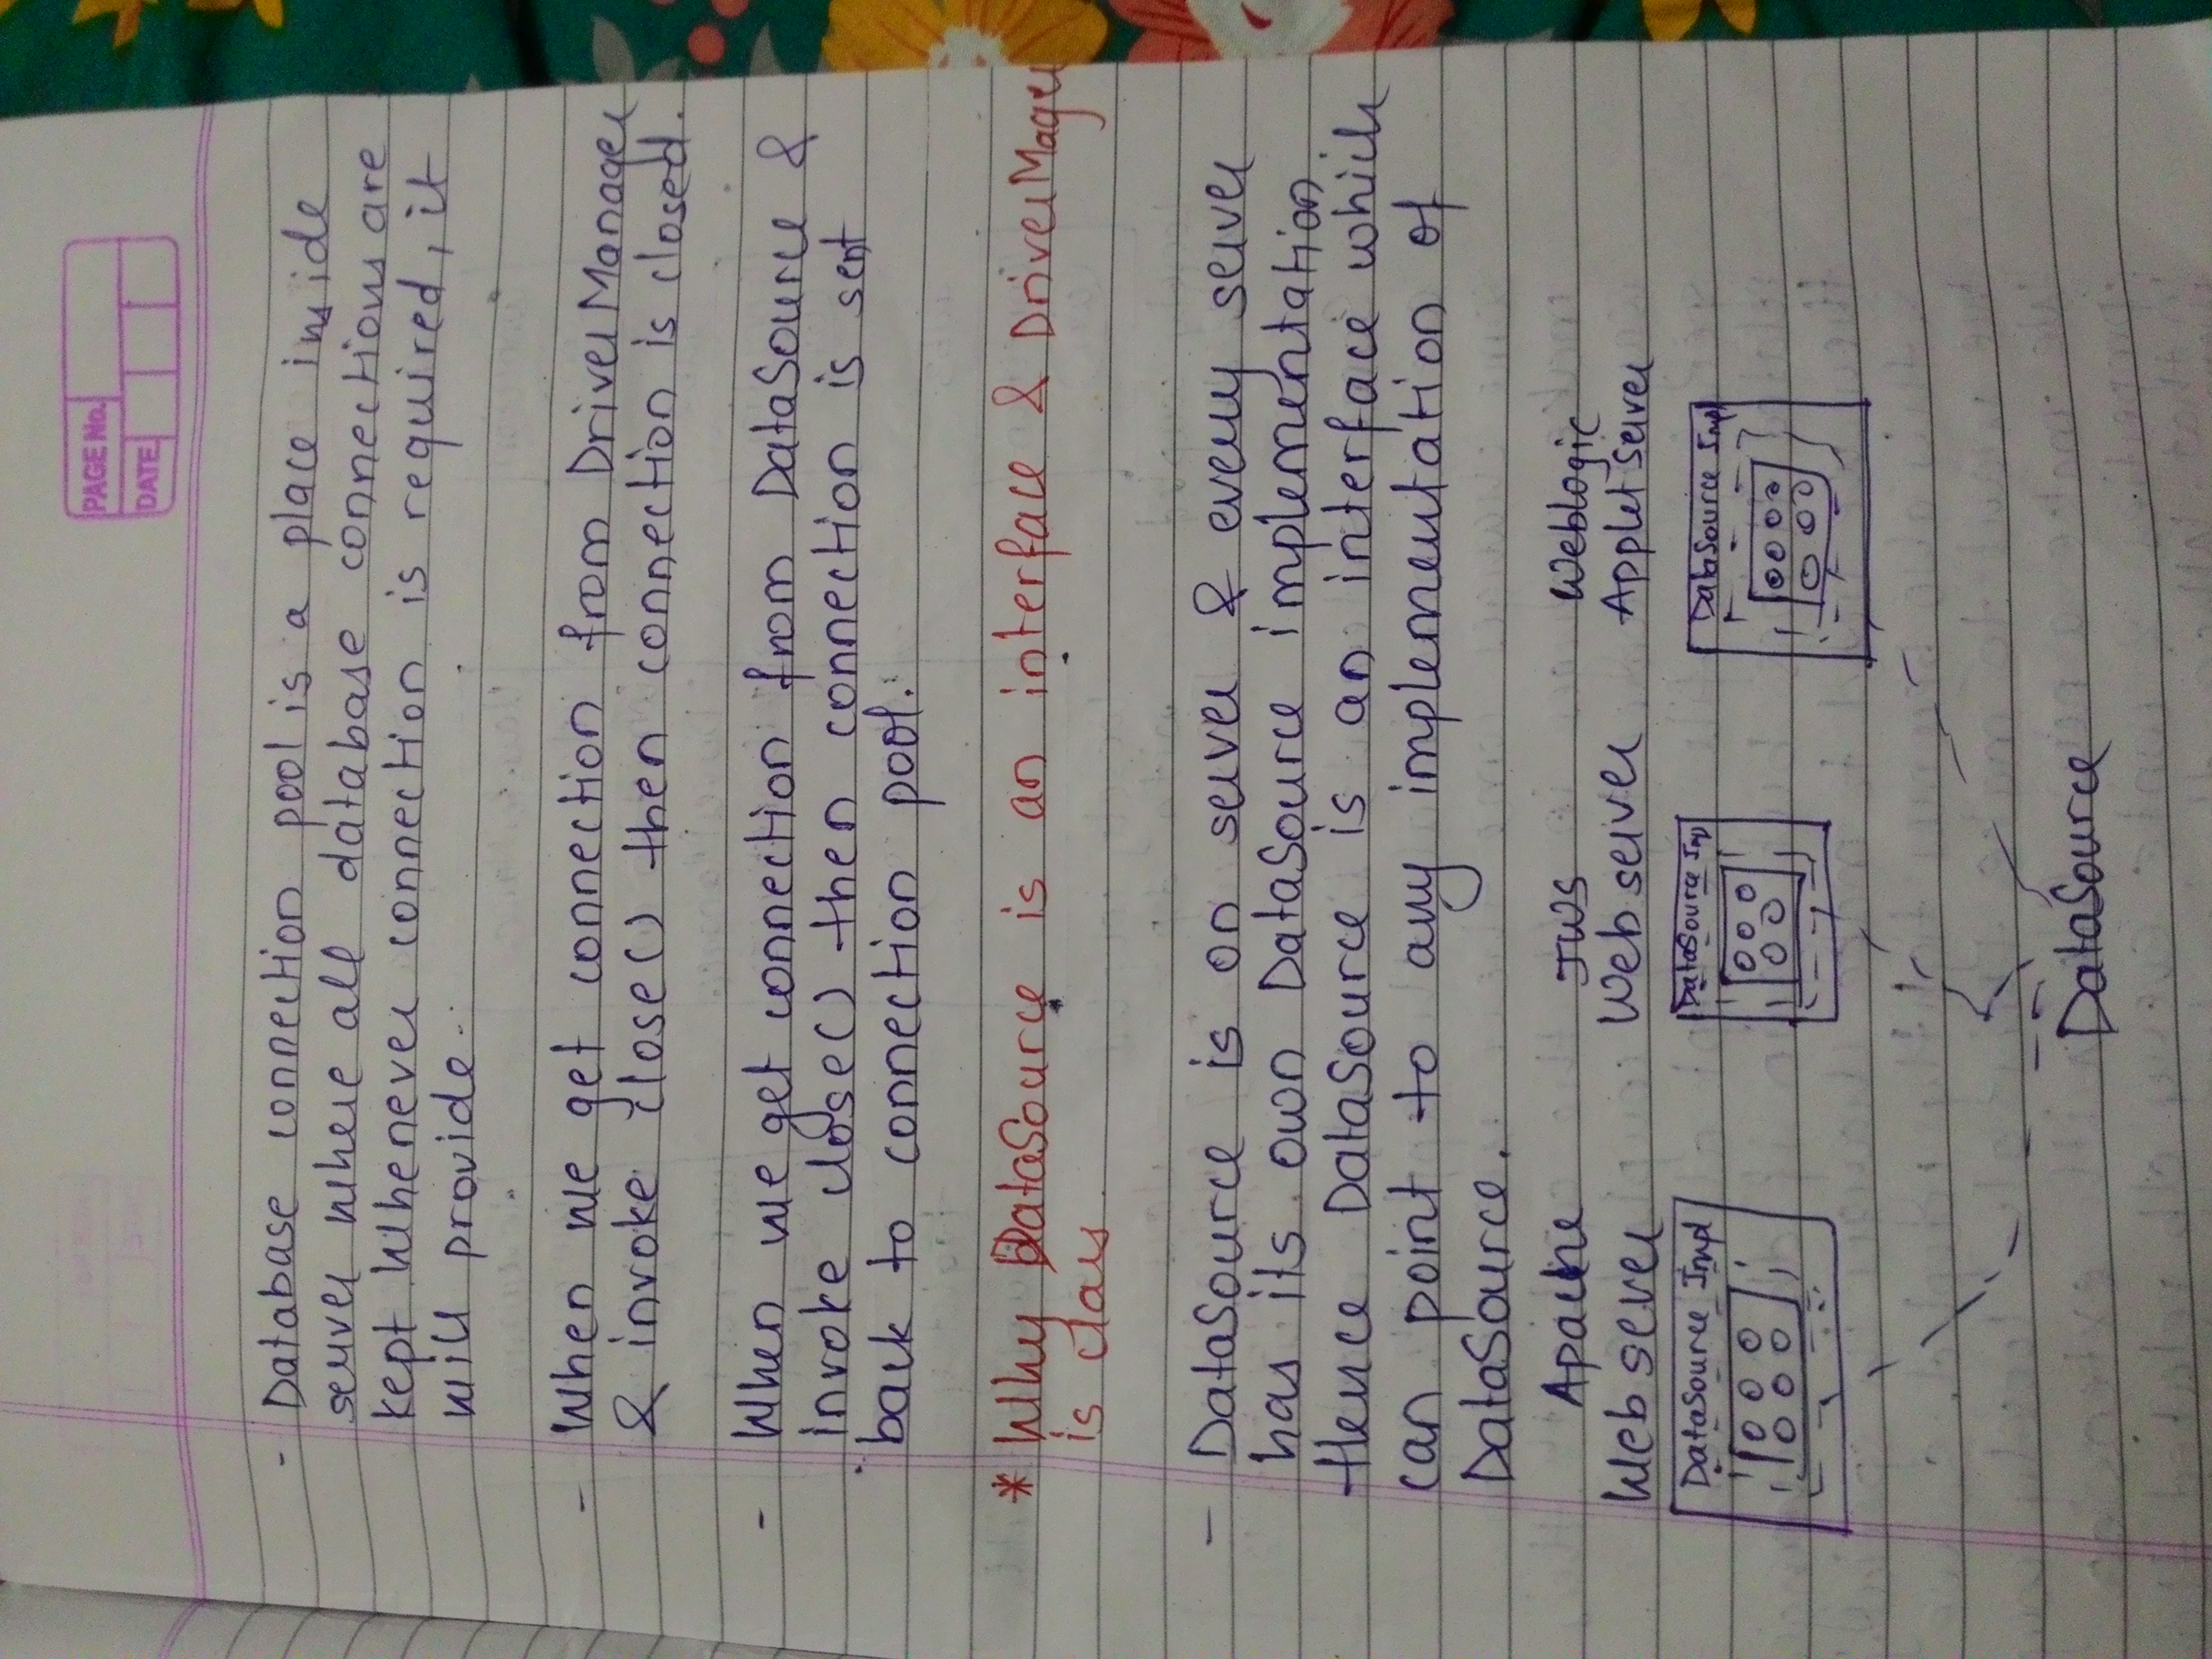 PAGE No.
DATE
- Database connection pool is a place inside
server where all database connections are
kept. Whenever connection is required, it
will provide.
- When we get connection from DriverManager
& invoke close() then connection is closed.
- When we get connection from DataSource &
invoke close() then connection is sent
back to connection pool.
* Why DataSource is an interface & DriverMager
is class
- DataSource is on server & every server
has its own DataSource implementation.
Hence DataSource is an interface which
can point to any implementation of
DataSource.
Apache JWS Weblogic
Web server Web server Applet Server
DataSource Impl DataSource Imp DataSource Impl
DataSource